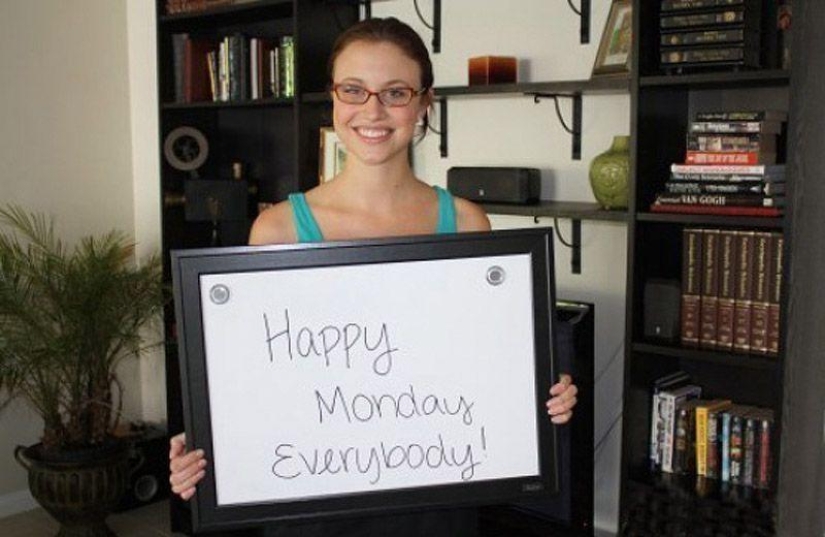 Happy
Monday
Everybody!
VAN GOGH